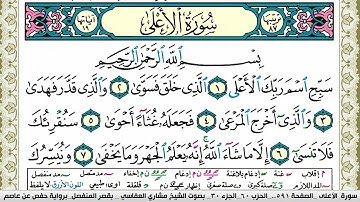 سُورَةُ الْأَعْلَى
بِسْمِ اللَّهِ الرَّحْمَٰنِ الرَّحِيمِ
سَبِّحِ اسْمَ رَبِّكَ الْأَعْلَى ١ الَّذِي خَلَقَ فَسَوَّىٰ ٢ وَالَّذِي قَدَّرَ فَهَدَىٰ
٣ وَالَّذِي أَخْرَجَ الْمَرْعَىٰ ٤ فَجَعَلَهُ غُثَاءً أَحْوَىٰ ٥ سَنُقْرِئُكَ
فَلَا تَنسَىٰ ٦ إِلَّا مَا شَاءَ اللَّهُ إِنَّهُ يَعْلَمُ الْجَهْرَ وَمَا يَخْفَىٰ ٧ وَنُيَسِّرُكَ
سورة الأعلى . الصفحة ٥٩١ . الجزء ٣٠ . بصوت الشيخ مشاري العفاسي . بقصر المنفصل . برواية حفص عن عاصم